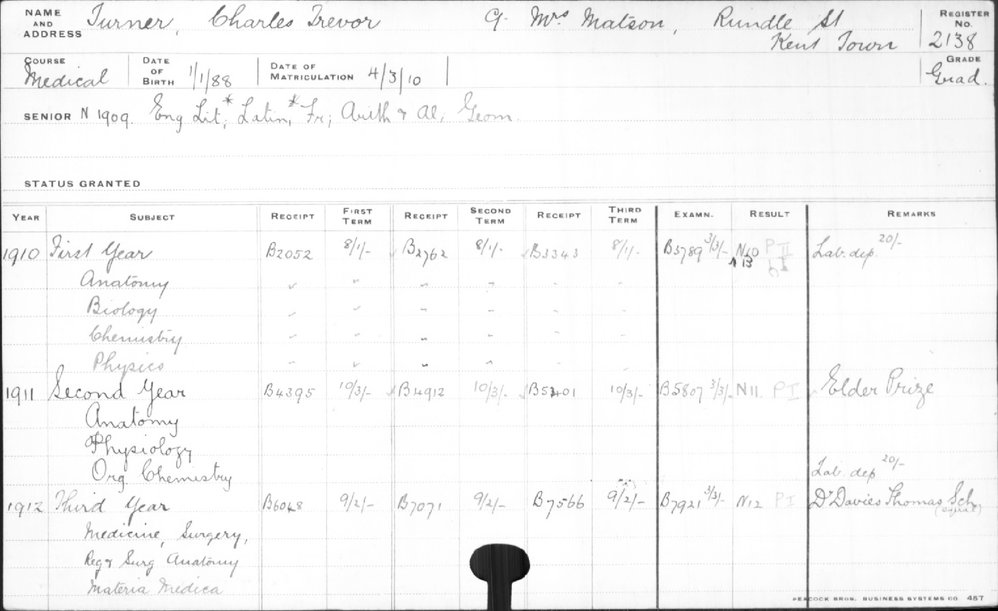 NAME AND ADDRESS Turner, Charles Trevor C/- Mrs Matson, Rundle St REGISTER No.
Kent Town 2138
COURSE Medical DATE OF BIRTH 1/1/88 DATE OF MATRICULATION 4/3/10 GRADE Grad.
SENIOR N 1909. Eng Lit,* Latin,* Fr; Arith & Al, Geom.
STATUS GRANTED
YEAR SUBJECT RECEIPT FIRST TERM RECEIPT SECOND TERM RECEIPT THIRD TERM EXAMN. RESULT REMARKS
1910 First Year B2052 8/1/- B2762 8/1/- B3343 8/1/- B3789 3/3/- N10 P II Lab. dep. 20/-
Anatomy
Biology
Chemistry
Physics
1911 Second Year B4395 10/3/- B4912 10/3/- B5401 10/3/- B5807 3/3/- N11 P I Elder Prize
Anatomy
Physiology
Org. Chemistry Lab. dep 20/-
1912 Third Year B6048 9/2/- B7071 9/2/- B7566 9/2/- B7921 3/3/- N12 P I Dr Davies Thomas Sch
Medicine, Surgery, (equal)
Reg & Surg Anatomy
Materia Medica
PEACOCK BROS. BUSINESS SYSTEMS CO. 457